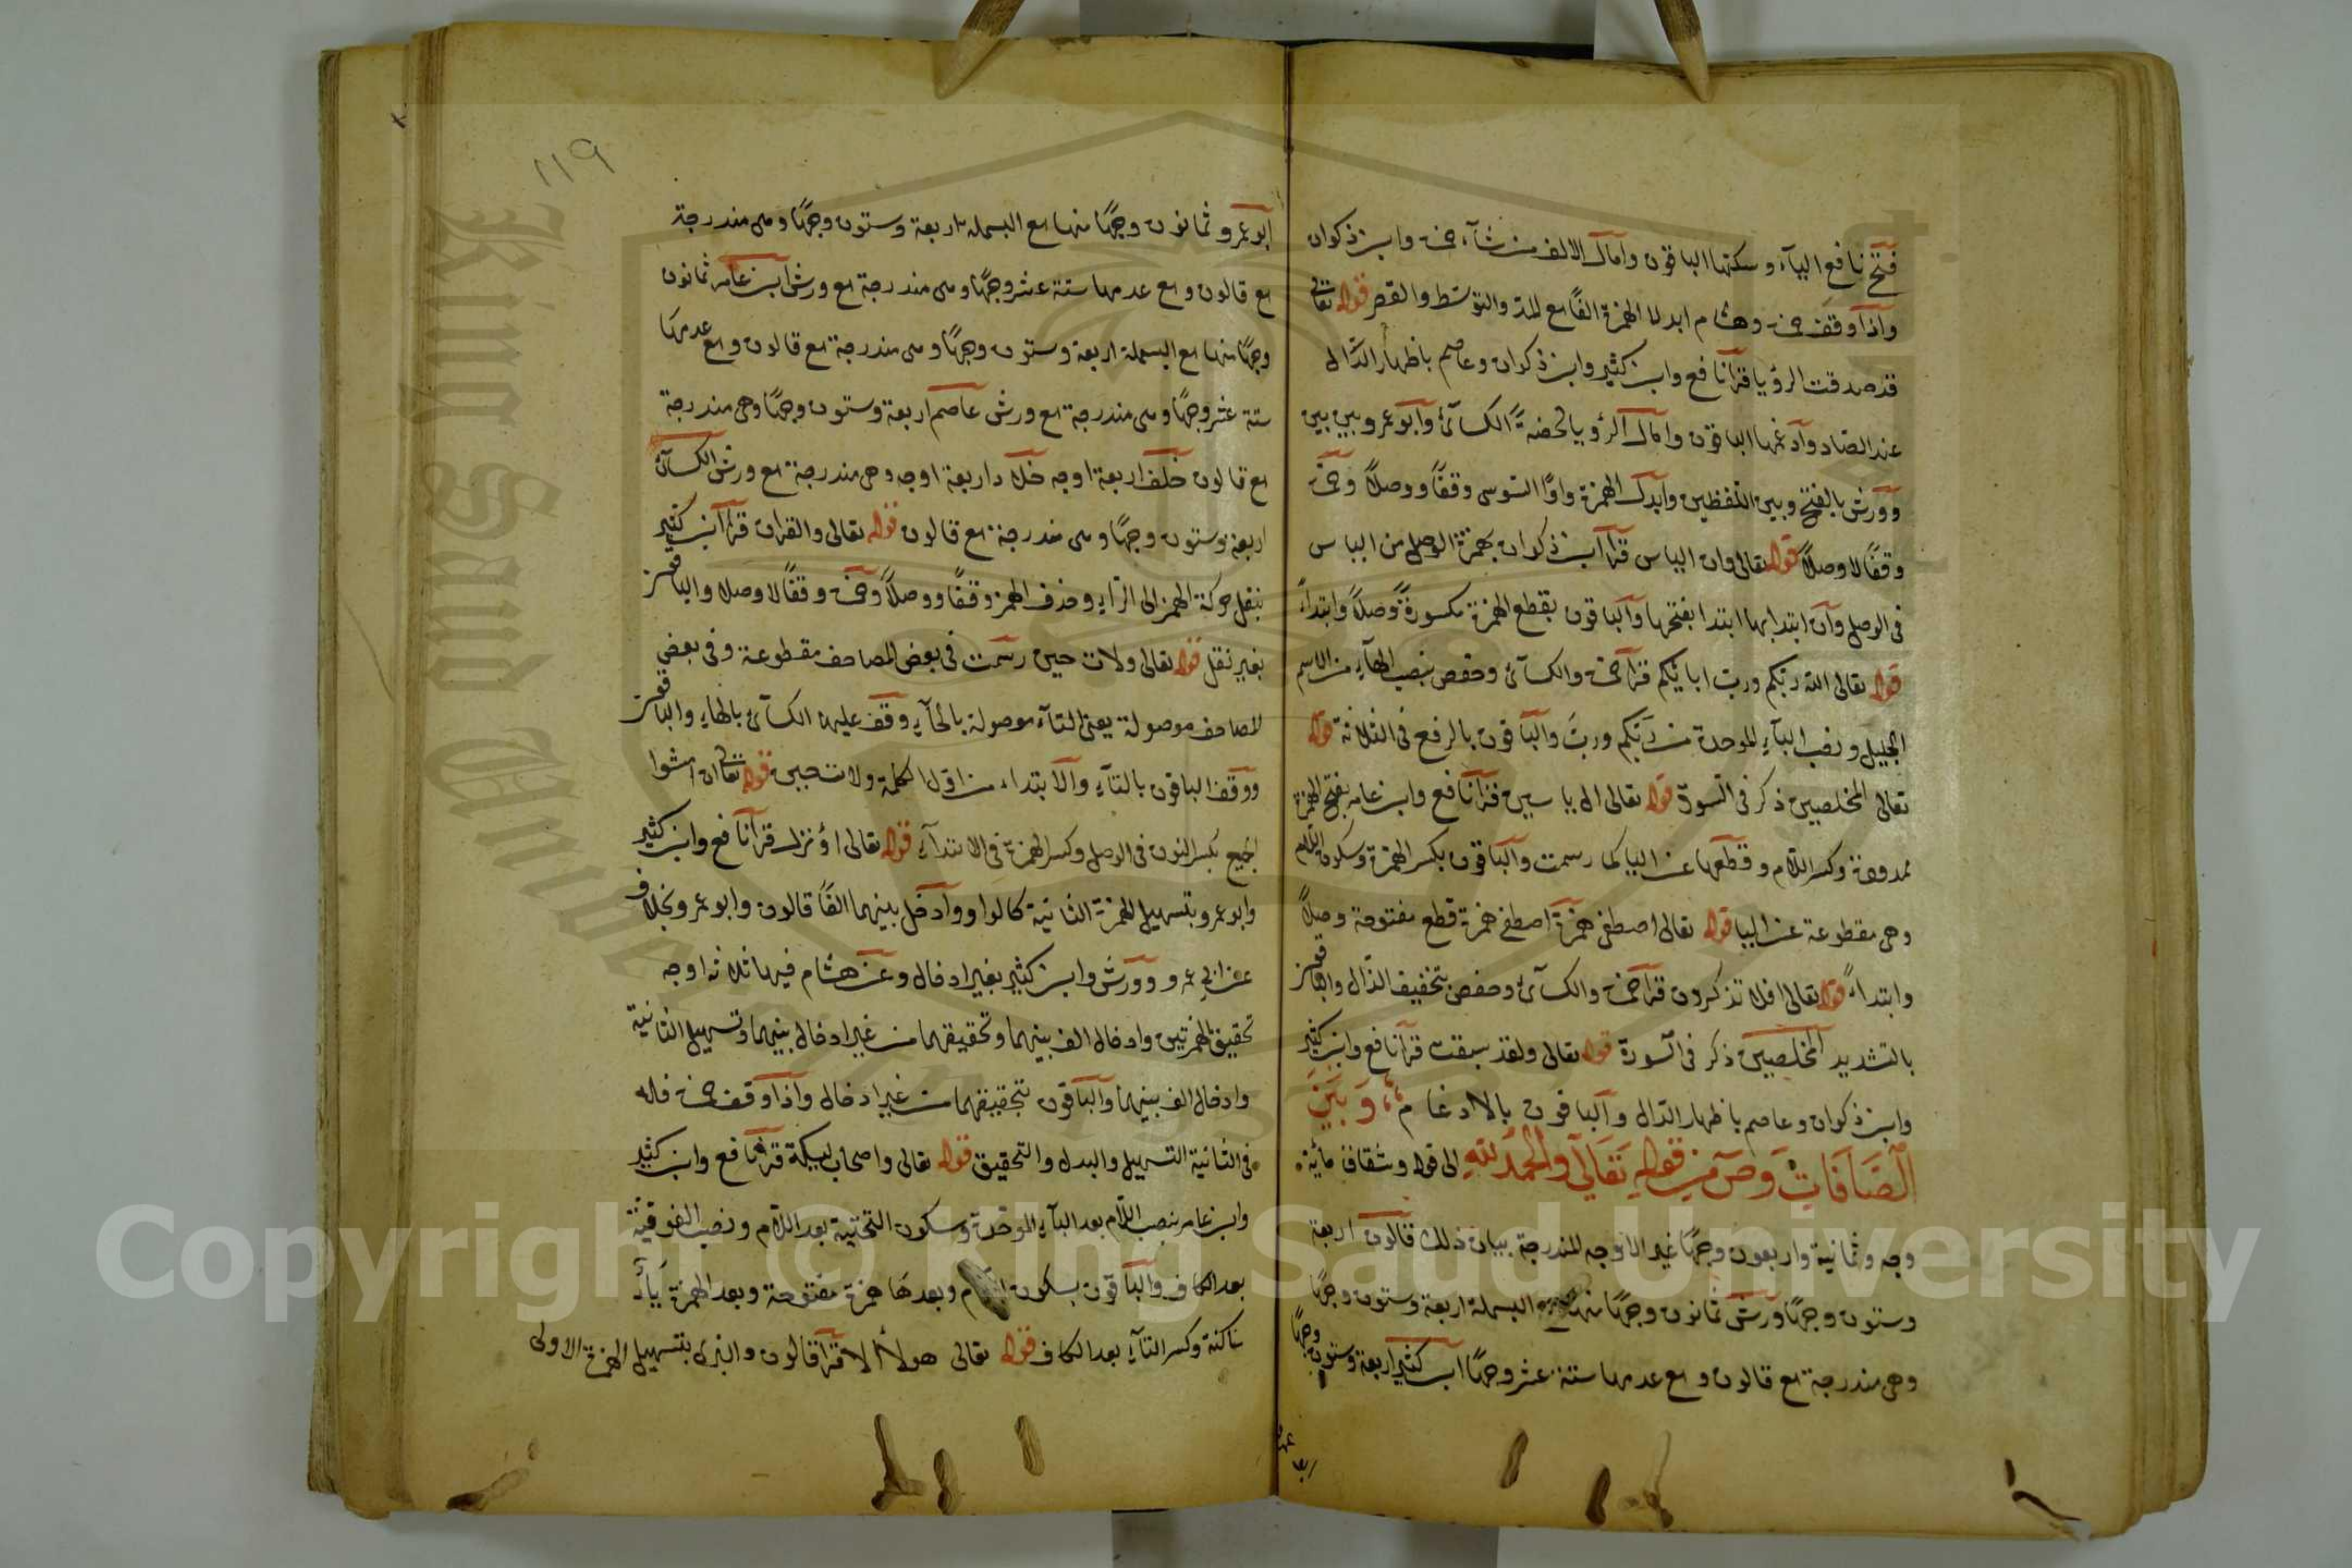 فتح نافع الياء وسكنها الباقون وامال الالف من شاء حمزة وابن ذكوان
واذا وقف حمزة وهشام ابدلا الهمزة الفًا مع المد والتوسط والقصر قوله تعالى
قد صدقت الرؤيا قرأ نافع وابن كثير وابن ذكوان وعاصم باظهار الدال
عند الصاد وادغمها الباقون وامال الرؤيا محضةً الكسائى وابو عمرو بين بين
وورش بالفتح وبين اللفظين وابدل الهمزة واوًا السوسى وقفًا ووصلاً وحمزة
وقفًا لا وصلاً قوله تعالى وان الياس قرأ ابن ذكوان بهمزة الوصل من الياس
فى الوصل وان ابتدا بها ابتدا بفتحها والباقون بقطع الهمزة مكسورةً وصلاً وابتداءً
قوله تعالى الله ربكم ورب ابائكم قرأ حمزة والكسائى وحفص بنصب الهاء من الاسم
الجليل ونصب الباء الموحدة من ربكم ورب والباقون بالرفع فى الثلاثة قوله
تعالى المخلصين ذكر فى السورة قوله تعالى ال ياسين قرأ نافع وابن عامر بفتح الهمزة
ممدودة وكسر اللام وقطعها عن اليا كما رسمت والباقون بكسر الهمزة وسكون اللام
وهى مقطوعة عن اليا قوله تعالى اصطفى همزة اصطفى همزة قطع مفتوحة وصلاً
وابتداءً قوله تعالى افلا تذكرون قرأ حمزة والكسائى وحفص بتخفيف الذال والباقون
بالتشديد المخلصين ذكر فى السورة قوله تعالى ولقد سبقت قرأ نافع وابن كثير
وابن ذكوان وعاصم باظهار الدال والباقون بالادغام وَبَيْنَ
الصَّافَاتِ وَصٓ مِن قولهِ تَعَالَى وَالحَمدُ للهِ الى قوله وشقاق مائة
وجه وثمانية واربعون وجهًا غير الاوجه المندرجة بيان ذلك قالون اربعة
وستون وجهًا ورش ثمانون وجهًا منها البسملة اربعة وستون وجهًا
وهى مندرجة مع قالون ومع عدمها ستة عشر وجهًا ابن كثير اربعة وستون وجهًا
١١٩
ابو عمرو ثمانون وجهًا منها مع البسملة اربعة وستون وجهًا وهى مندرجة
مع قالون ومع عدمها ستة عشر وجهًا وهى مندرجة مع ورش ابن عامر ثمانون
وجهًا منها مع البسملة اربعة وستون وجهًا وهى مندرجة مع قالون ومع عدمها
ستة عشر وجهًا وهى مندرجة مع ورش عاصم اربعة وستون وجهًا وهى مندرجة
مع قالون خلف اربعة اوجه خلاد اربعة اوجه وهى مندرجة مع ورش الكسائى
اربعة وستون وجهًا وهى مندرجة مع قالون قوله تعالى والقران قرأ ابن كثير
بنقل حركة الهمز الى الراء وحذف الهمز وقفًا ووصلاً وحمزة وقفًا لا وصلا والباقون
بغير نقل قوله تعالى ولات حين رسمت فى بعض المصاحف مقطوعة وفى بعض
المصاحف موصولة يعنى التاء موصولة بالحاء وقف عليها الكسائى بالهاء والباقون
ووقف الباقون بالتاء والابتداء من اول الكلمة ولات حين قوله تعالى ان امشوا
الجميع بكسر النون فى الوصل وكسر الهمزة فى الابتداء قوله تعالى اؤنزل قرأ نافع وابن كثير
وابو عمرو بتسهيل الهمزة الثانية كالواو وادخل بينهما الفًا قالون وابو عمرو بخلاف
عن ابى عمرو وورش وابن كثير بغير ادخال وعن هشام فيها ثلاثة اوجه
تحقيق الهمزتين وادخال الف بينهما وتحقيقهما من غير ادخال بينهما وتسهيل الثانية
وادخال الف بينهما والباقون بتحقيقهما من غير ادخال واذا وقف حمزة فله
فى الثانية التسهيل والبدل والتحقيق قوله تعالى واصحاب ليكة قرأ نافع وابن كثير
وابن عامر بنصب اللام بعد الباء الموحدة وسكون التحتية بعد اللام ونصب الفوقية
بعد الكاف والباقون بسكون اللام وبعدها همزة مفتوحة وبعد الهمزة ياء
ساكنة وكسر التاء بعد الكاف قوله تعالى هولاء الا قرأ قالون والبزى بتسهيل الهمزة الاولى
King Saud University
Copyright © King Saud University